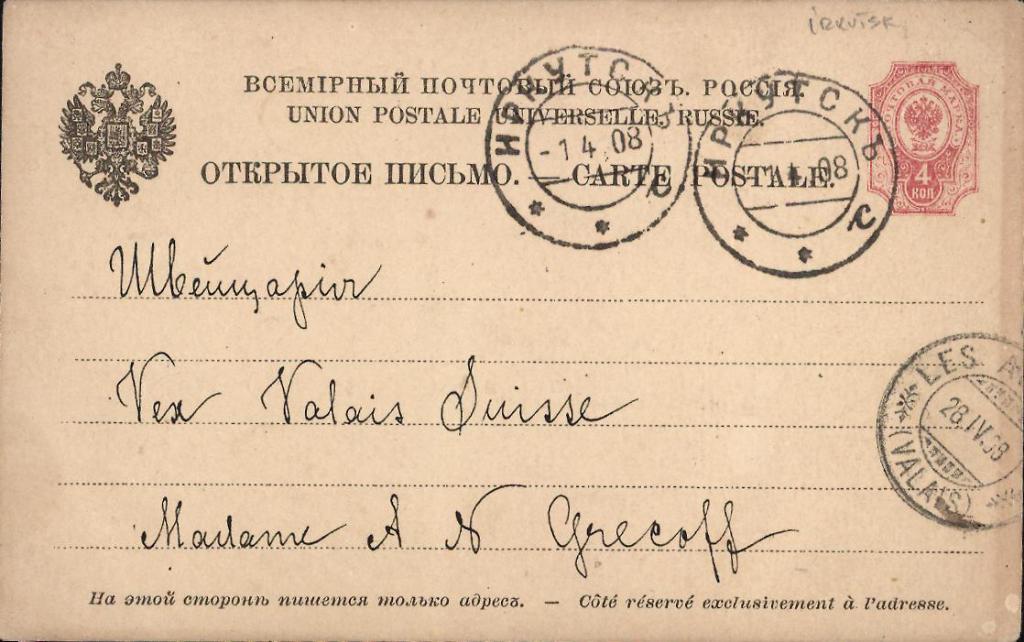 irkutsk
ВСЕМІРНЫЙ ПОЧТОВЫЙ СОЮЗЪ. РОССІЯ.
UNION POSTALE UNIVERSELLE. RUSSIE.
ОТКРЫТОЕ ПИСЬМО. — CARTE POSTALE.
ИРКУТСКЪ
-1 4.08
ИРКУТСКЪ
4.08
ПОЧТОВАЯ МАРКА
4
КОП
Швейцарія
Vex Valais Suisse
LES
28.IV.08
(VALAIS)
Madame A N Grecoff
На этой сторонѣ пишется только адресъ. — Côté réservé exclusivement à l'adresse.